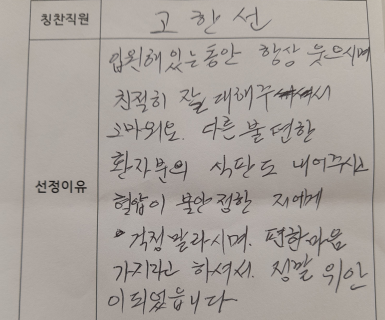 칭찬직원 고한선
입원해 있는동안 항상 웃으시며
친절히 잘 대해주셔서
고마워요. 다른 불편한
환자분의 식판도 내어주시고
선정이유
혈압이 불안정한 저에게
걱정말라시며. 편한마음
가지라고 하셔서. 정말 위안
이되었읍니다